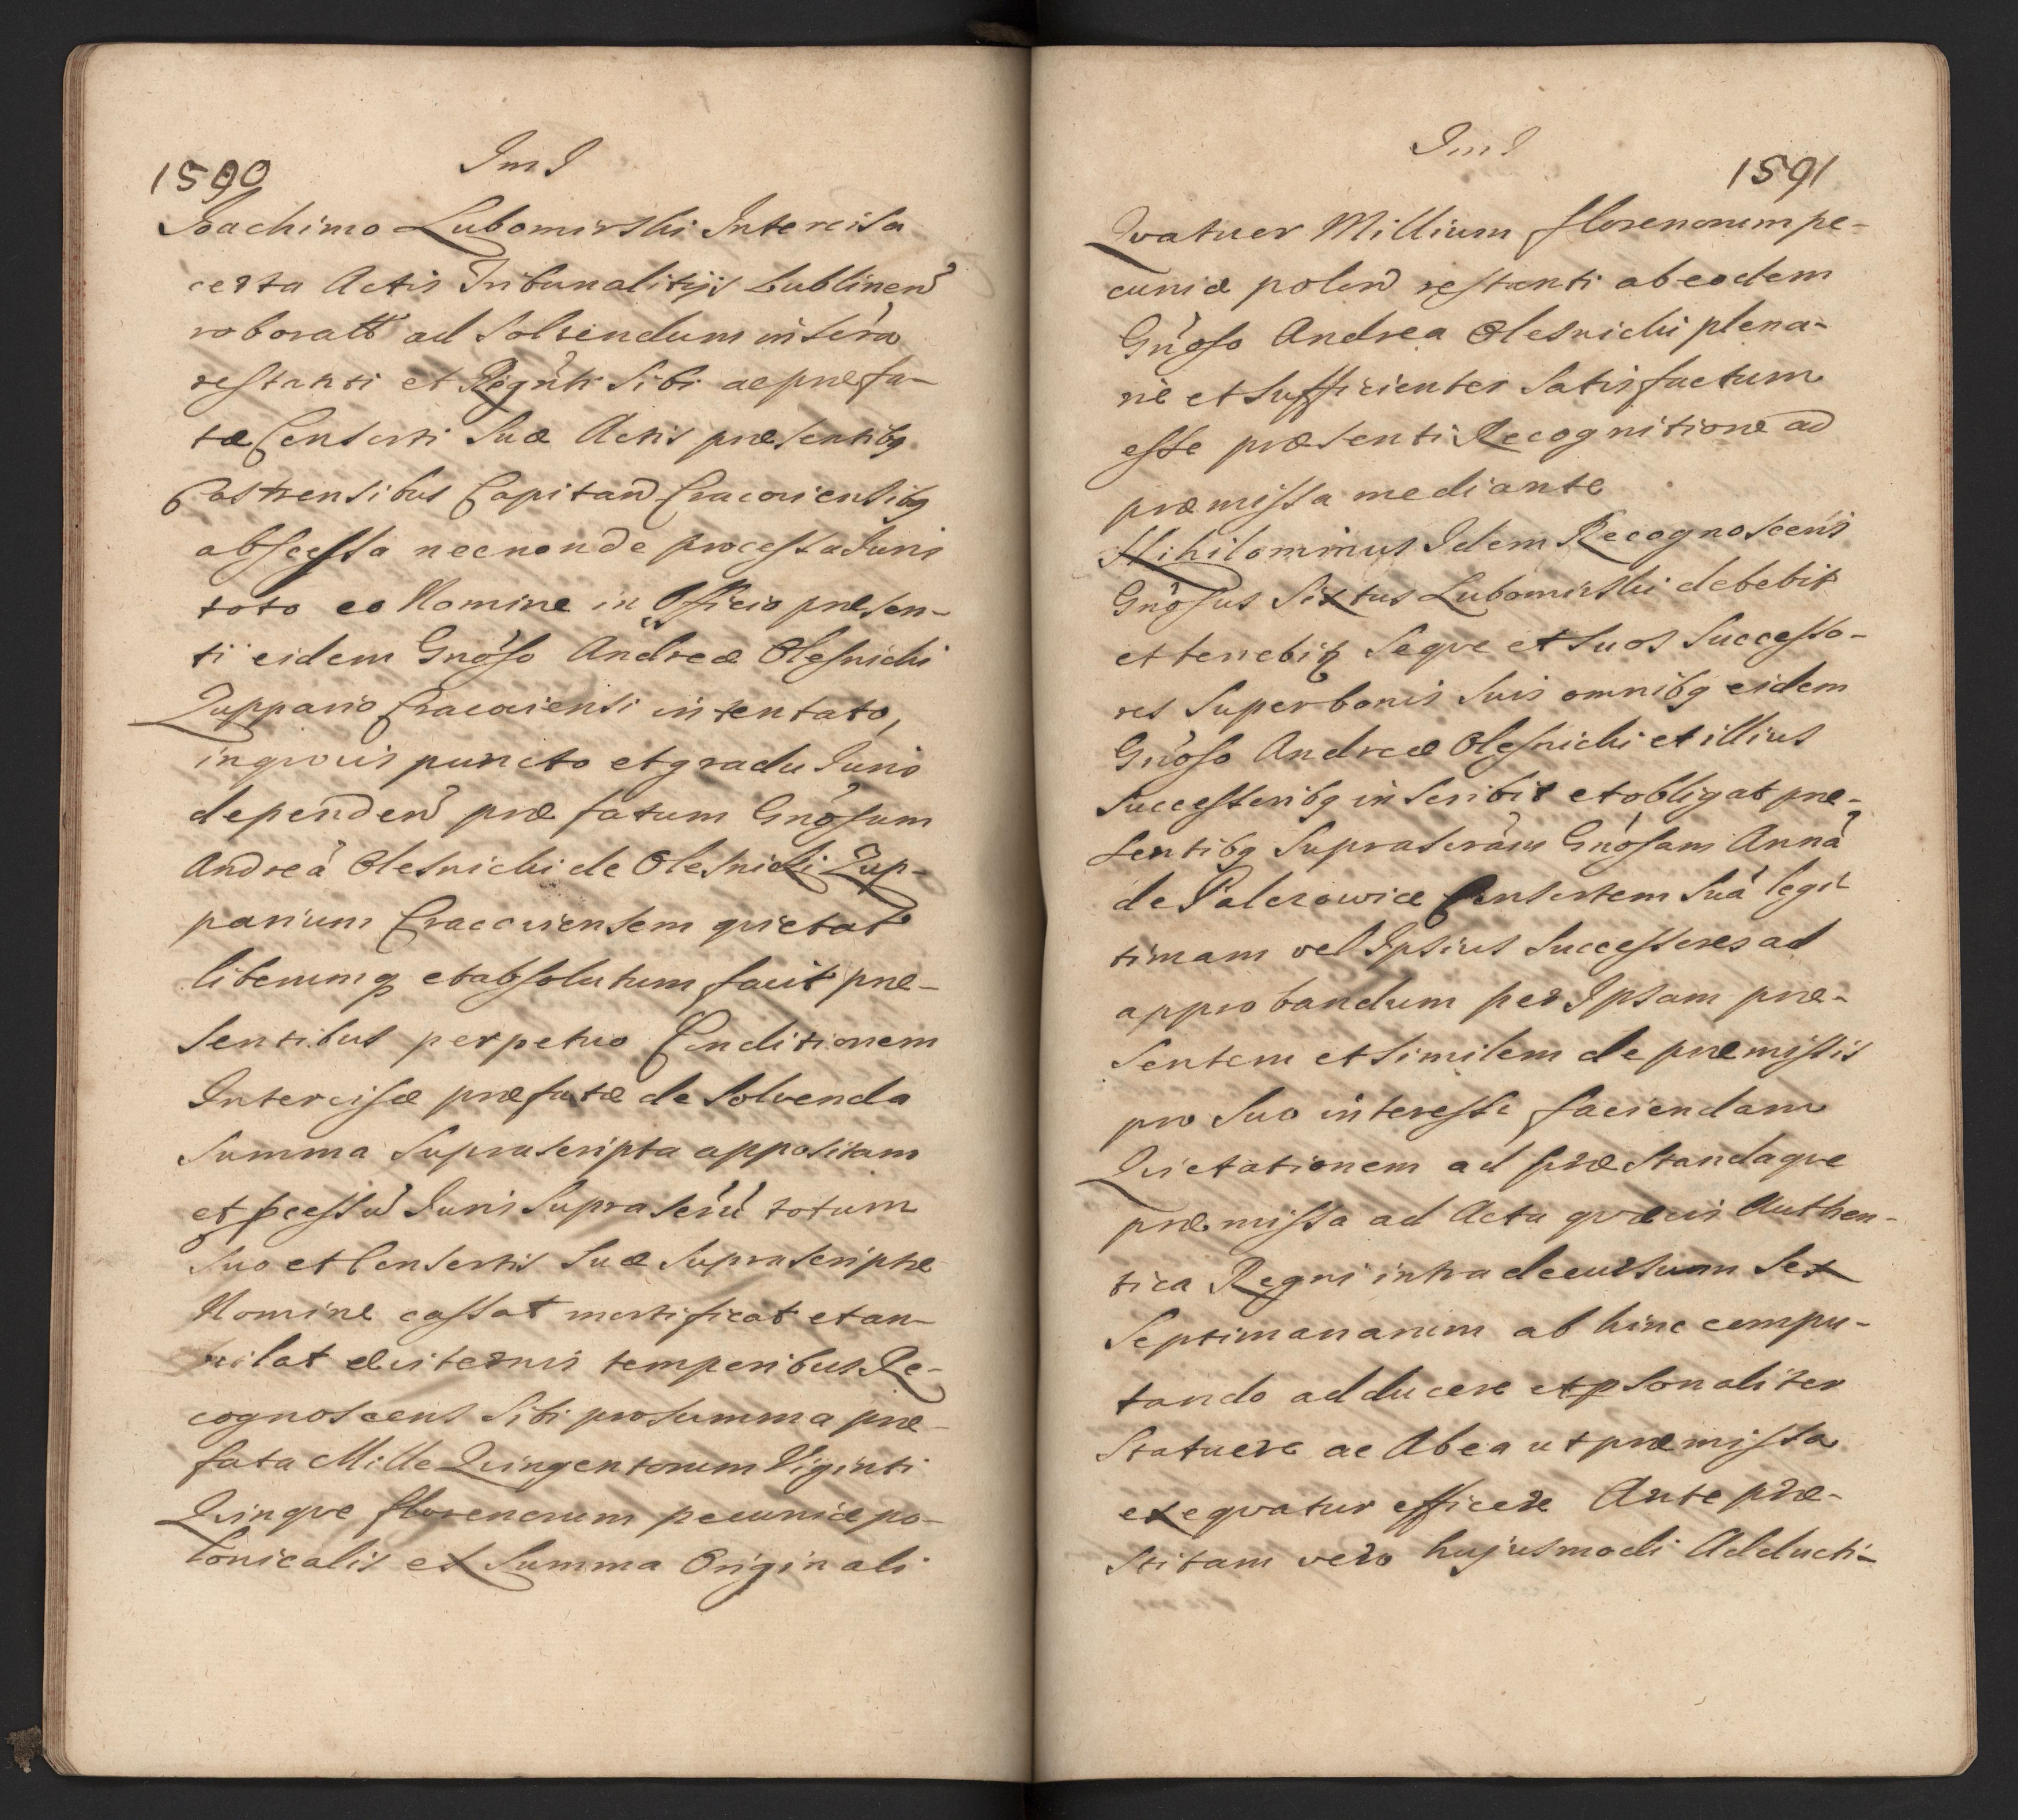 1590
Im I
Joachimo Lubomirski Intercisa
certa Actis Tribunalitijs Lublinen̄
roborat̄t̄ ad Solvendum insēra
restanti et Regn̄ti Sibi ac præfa-
tæ Consorti Suæ Actis præsentibq
Castrensibus Capitan̄ Cracoviensibq
abscessa necnon de processu Juris
toto eo Nomine in Officio præsen-
ti eidem Gnōso Andreæ Olesnicki
Zuppario Cracoviensi intentato,
in qvovis puncto et gradu Juris
dependen̄ præfatum Gnōsum
Andreā Olesnicki de Olesnicki Zup-
parium Cracoviensem qvietat
liberumq et absolutum facit præ-
sentibus perpetuo Conditionem
Intercisæ præfatæ de Solvenda
Summa Suprascripta appositam
et pcessū Juris Suprascr̄ū totum
Suo et Consortis Suæ Suprascriptæ
Nomine cassat mortificat et an-
nilat æviternis temporibus Re-
cognoscens Sibi pro summa præ-
fata Mille Qvingentorum Viginti
Qvinqve florenorum pecuniæ po-
lonicalis ex Summa Originali
Im I
1591
Qvatuor Millium florenorum pe-
cuniæ polon̄ restanti ab eodem
Gnōso Andrea Olesnicki plena-
rie et Sufficienter Satisfactum
esse præsenti Recognitione ad
præmissa mediante
Nihilominus Idem Recognoscens
Gnōsus Sixtus Lubomirski debebit
et tenebitq Seqve et Suos Successo-
res Super bonis Suis omnibq eidem
Gnōso Andreæ Olesnicki et illius
Successoribq inscribit et obligat præ-
sentibq Suprascrām Gnōsam Annā
de Palczowicæ Consortem Suā legi-
timam vel Ipsius Successores ad
approbandum per Ipsam præ-
sentem et Similem de præmissis
pro Suo interesse faciendam
Qvietationem ad præstandaqve
præmissa ad Acta qvævis Authen-
tica Regni intra decursum Sex
Septimanarum ab hinc compu-
tando adducere et psonaliter
Statuere ac Ab ea ut præmissa
exeqvatur efficere Ante præ-
stitam vero hujusmodi Adducti-